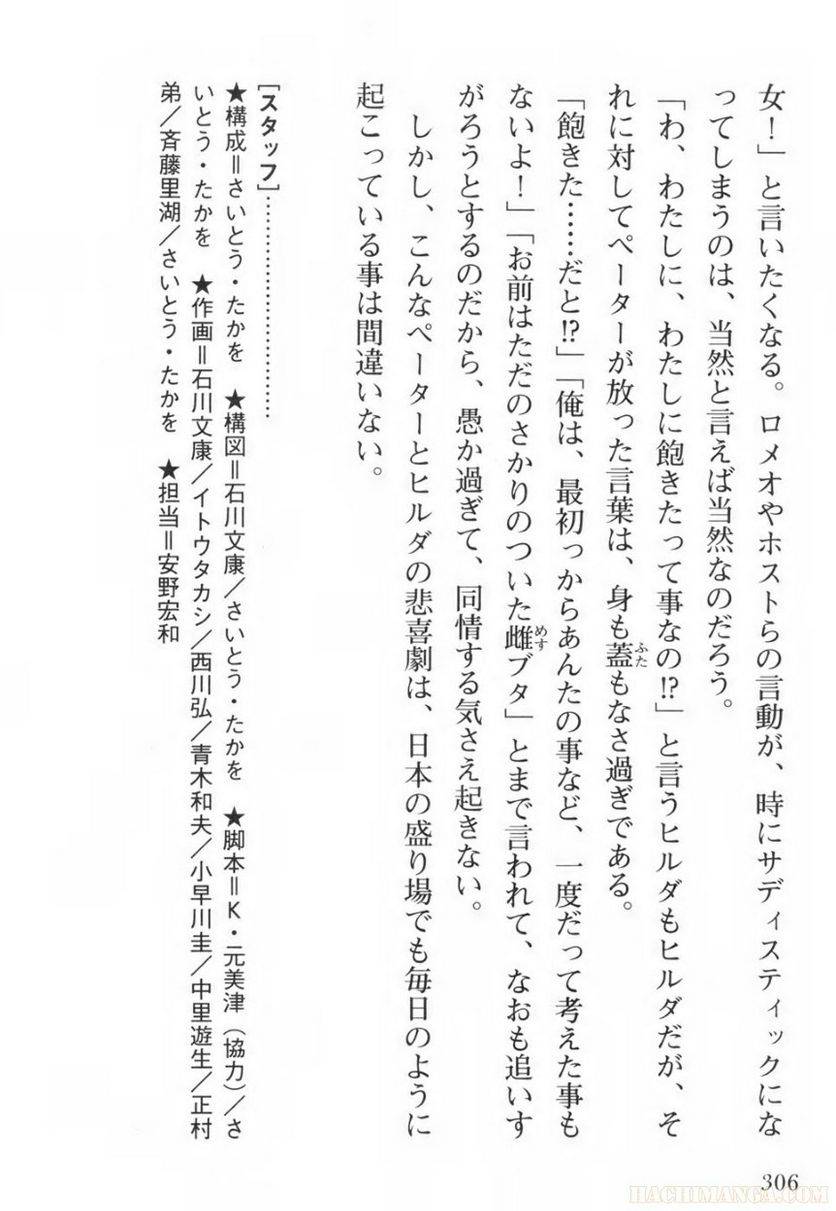 女！」と言いたくなる。ロメオやホストらの言動が、時にサディスティックにな
ってしまうのは、当然と言えば当然なのだろう。
「わ、わたしに、わたしに飽きたって事なの!?」と言うヒルダもヒルダだが、そ
れに対してペーターが放った言葉は、身も蓋もなさ過ぎである。
ふた
「飽きた……だと!?」「俺は、最初っからあんたの事など、一度だって考えた事も
ないよ！」「お前はただのさかりのついた雌ブタ」とまで言われて、なおも追いす
めす
がろうとするのだから、愚か過ぎて、同情する気さえ起きない。
しかし、こんなペーターとヒルダの悲喜劇は、日本の盛り場でも毎日のように
起こっている事は間違いない。
［スタッフ］………………………………
★構成＝さいとう・たかを　★構図＝石川文康／さいとう・たかを　★脚本＝K・元美津（協力）／さ
いとう・たかを　★作画＝石川文康／イトウタカシ／西川弘／青木和夫／小早川圭／中里遊生／正村
弟／斉藤里湖／さいとう・たかを　★担当＝安野宏和
306
HACHIMANGA.COM